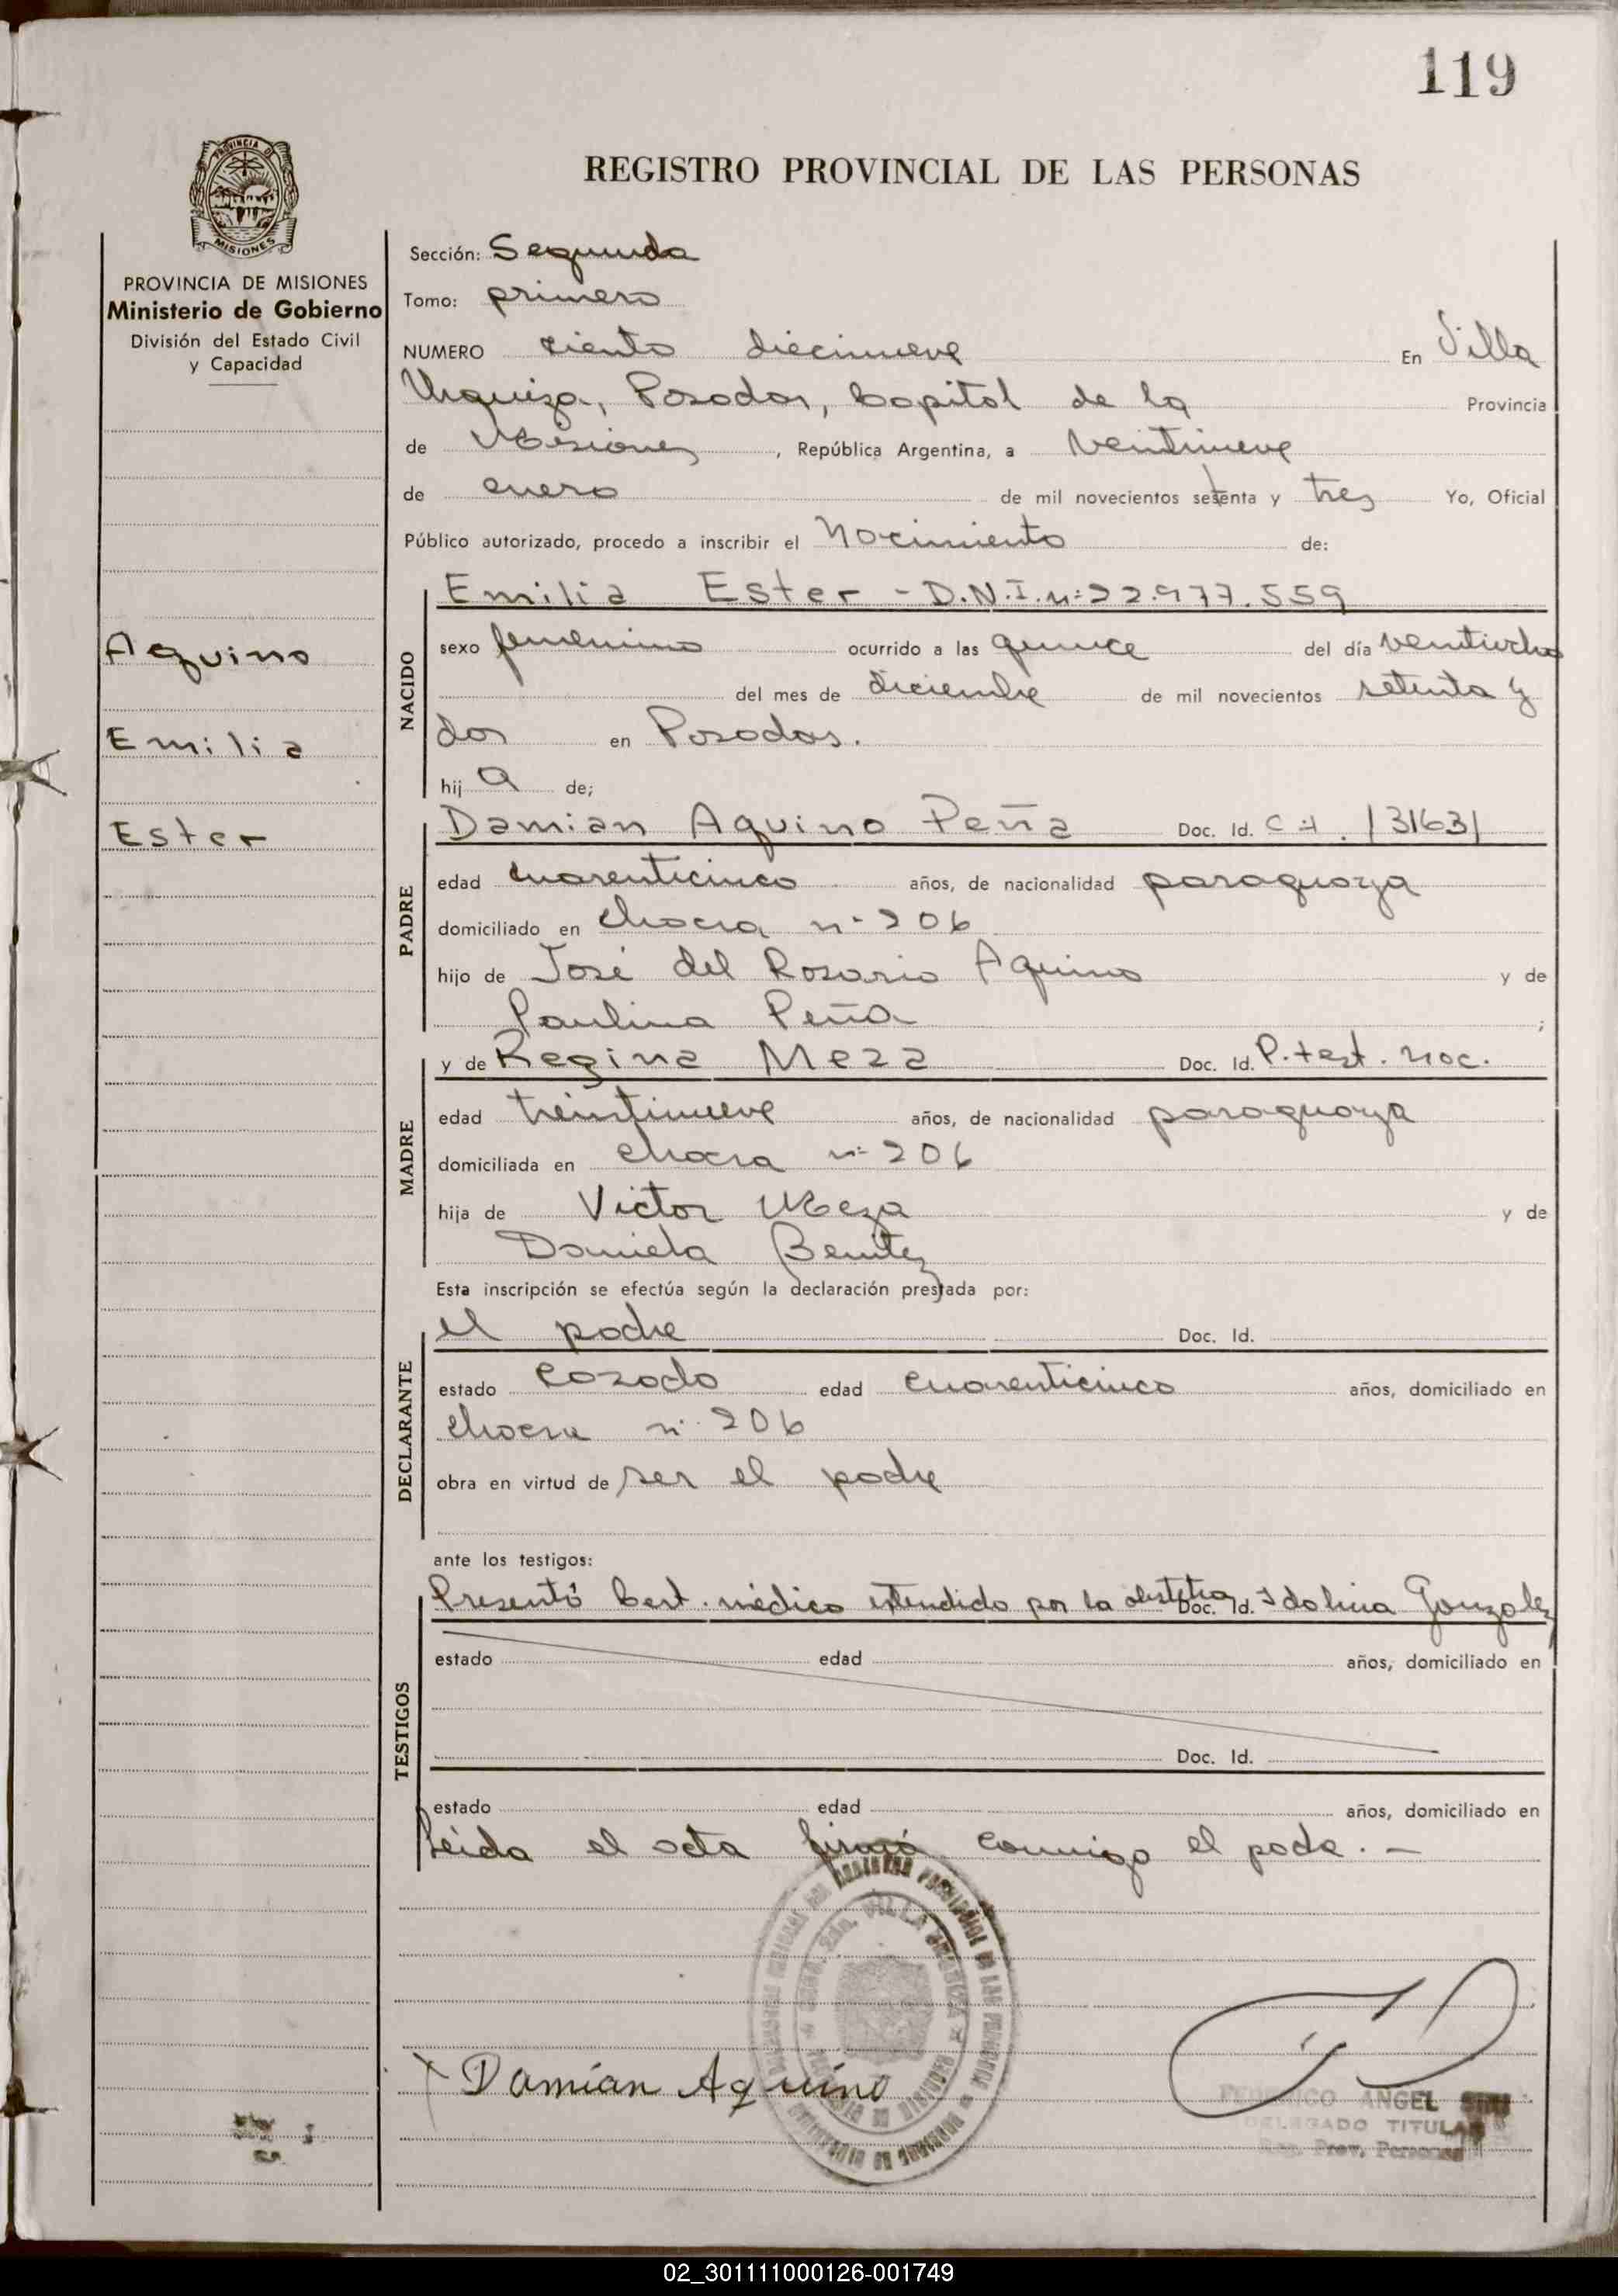 119
PROVINCIA DE
MISIONES
REGISTRO PROVINCIAL DE LAS PERSONAS
PROVINCIA DE MISIONES
Ministerio de Gobierno
División del Estado Civil
y Capacidad
Aquino
Emilia
Ester
Sección: Segunda
Tomo: primero
NUMERO ciento diecinueve En Villa
Urquiza, Posadas, Capital de la Provincia
de Misiones, República Argentina, a veintinueve
de enero de mil novecientos setenta y tres Yo, Oficial
Público autorizado, procedo a inscribir el nacimiento de:
NACIDO
Emilia Ester - D.N.I. nº 22.977.559
sexo femenino ocurrido a las quince del día ventiocho
del mes de diciembre de mil novecientos setenta y
dos en Posadas.
hij a de;
PADRE
Damian Aquino Peña Doc. Id. C.I. 131631
edad cuarenticinco años, de nacionalidad paraguaya
domiciliado en chacra nº 206
hijo de José del Rosario Aquino y de
Paulina Peña ;
MADRE
y de Regina Meza Doc. Id. P. test. nac.
edad treintinueve años, de nacionalidad paraguaya
domiciliada en chacra nº 206
hija de Victor Meza y de
Daniela Benitez
Esta inscripción se efectúa según la declaración prestada por:
DECLARANTE
el padre Doc. Id.
estado casado edad cuarenticinco años, domiciliado en
chacra nº 206
obra en virtud de ser el padre
ante los testigos:
TESTIGOS
Presentó Cert. médico extendido por la obstetra Doc. Id. Idolina Gonzalez
estado edad años, domiciliado en
Doc. Id.
estado edad años, domiciliado en
Leida el acta firmó conmigo el padre. -
VILLA URQUIZA
Damián Aquino
FEDERICO ANGEL
DELEGADO TITULAR
Reg. Prov. Personas
02_301111000126-001749